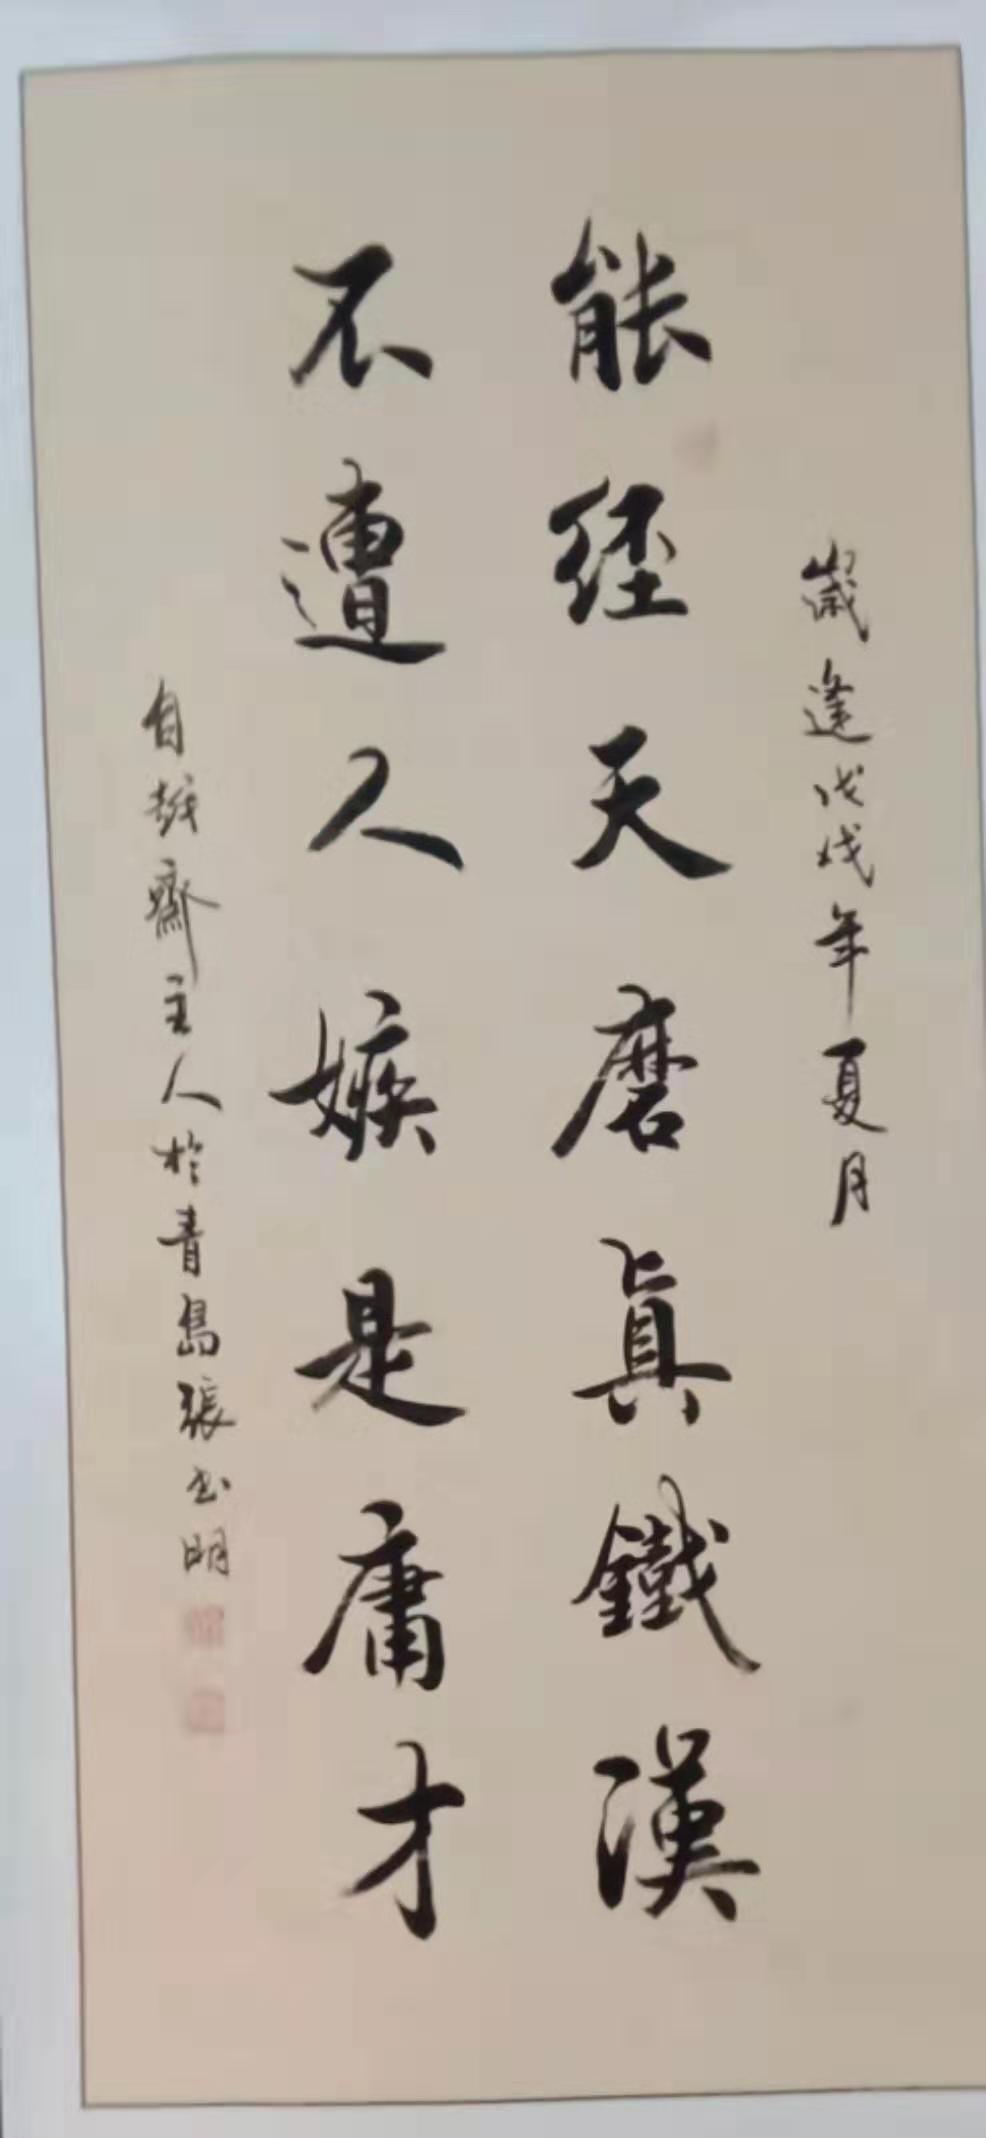 歲逢戊戌年夏月
能經天磨真鐵漢
不遭人嫉是庸才
自越齋主人於青島張書明